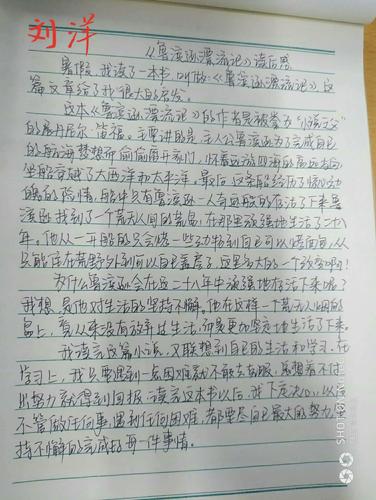 刘洋
《鲁滨逊漂流记》读后感
暑假,我读了一本书,叫做《鲁滨逊漂流记》这
篇文章给了我很大的启发。
这本《鲁滨逊漂流记》的作者是被誉为“小说之父”
的丹尼尔·笛福。主要讲的是,主人公鲁滨逊为了完成自己
的航海梦想而偷偷离开家门,怀着远游四海的高远志向
坐船穿越了大西洋和太平洋。最后,这条船经历了惊心动
魄的险情,船中只有鲁滨逊一人奇迹般的存活了下来鲁
滨逊找到了一个荒无人间的荒岛,在那里顽强地生活了二十八
年。他从一开始的只会做一些
只能住在荒野外到可以自己盖房子,这是多大的一个改变啊!
为什么鲁滨逊会在这二十八年中顽强地存活下来呢?
我想,是他对生活的坚持不懈。他在这样一个荒无人烟的
岛上,居然没有放弃过生活,而是更加坚定地生活了下来。
我读完这篇小说,又联想到自己的生活和学习,在
学习上,我只要遇到一点困难就不敢去克服,总想着不付
出努力就得到回报,读完这本书以后,我下定决心,以后
不管做任何事,遇到任何困难,都要尽自己最大的努力,坚
持不懈的完成好每一件事情。
SHOT ON